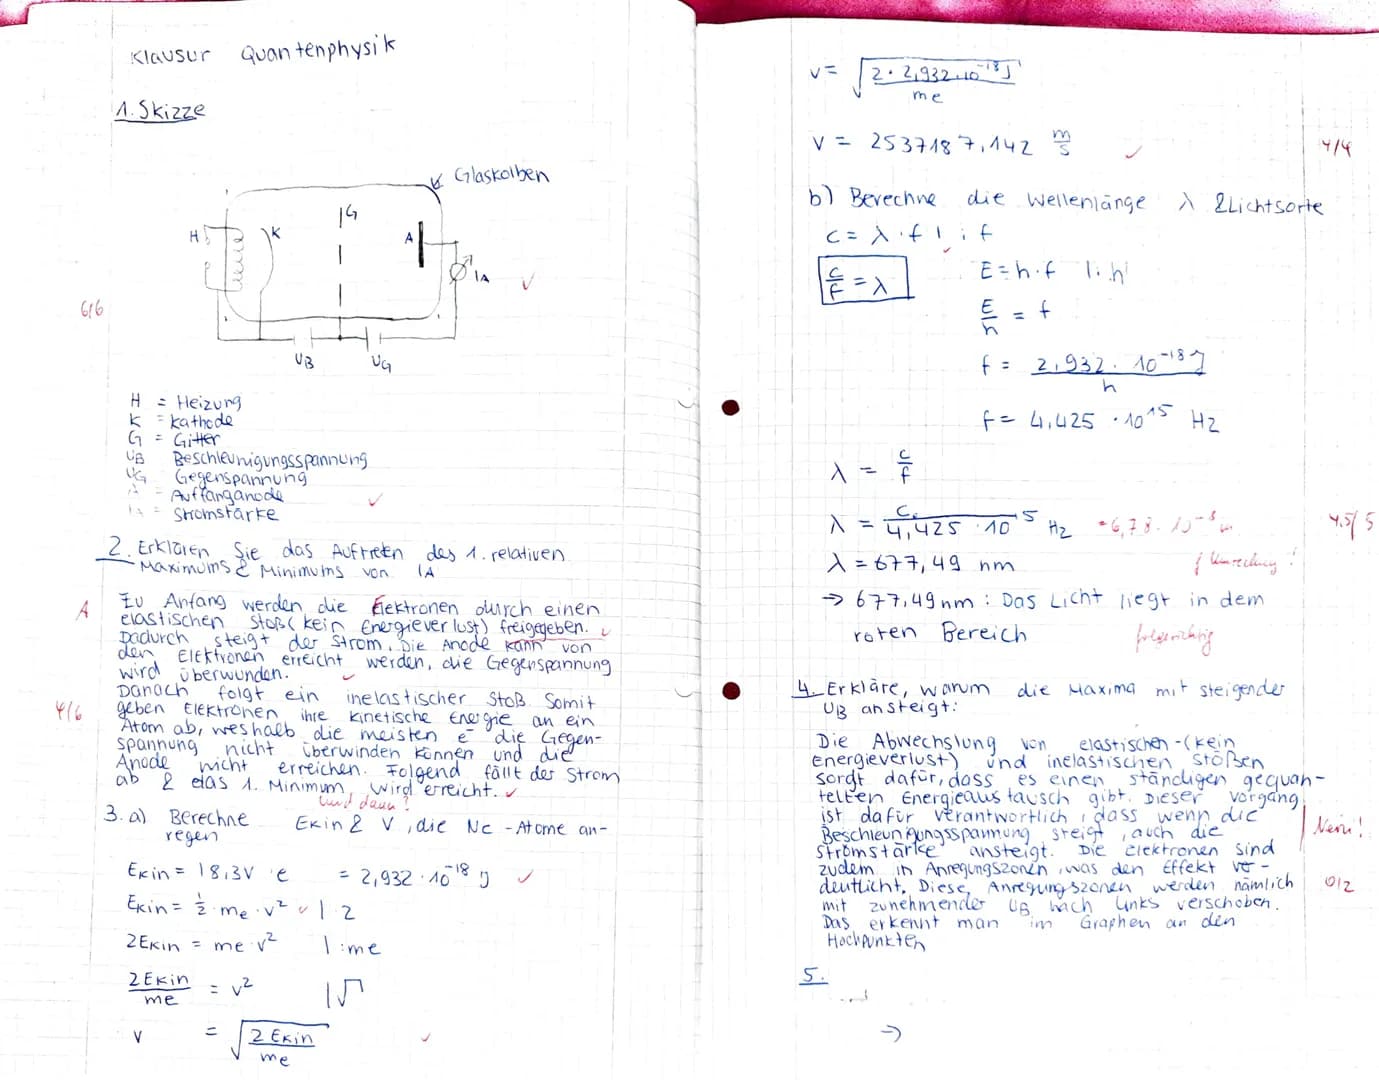 Klausur Quantenphysik
1. Skizze
Glaskolben
G
H
K
A
IA
✓
6/6
UB
UG
H = Heizung
K = Kathode
G = Gitter
UB Beschleunigungsspannung
UG Gegenspannung
A = Auffanganode ✓
IA = Stromstärke
2. Erklären Sie das Auftreten des 1. relativen
Maximums & Minimums von IA
A
Zu Anfang werden die Elektronen durch einen
elastischen Stoß (kein Energieverlust) freigegeben. ✓
Dadurch steigt der Strom. Die Anode kann von
den Elektronen erreicht werden, die Gegenspannung
wird überwunden. ✓
Danach folgt ein inelastischer Stoß. Somit
4/6
geben Elektronen ihre kinetische Energie an ein
Atom ab, weshalb die meisten e⁻ die Gegen-
spannung nicht überwinden können und die
Anode nicht erreichen. Folgend fällt der Strom
ab & das 1. Minimum wird erreicht. ✓
und dann?
3. a) Berechne Ekin & V, die Ne-Atome an-
regen
Ekin = 18,3V · e = 2,932 · 10⁻¹⁸ J ✓
Ekin = ½ · me · v² ✓ | · 2
2Ekin = me · v² | : me
2Ekin / me = v² | √
v = √(2 Ekin / me) ✓
v = √(2 · 2,932 · 10⁻¹⁸ J / me)
v = 2537187,142 m/s ✓
4/4
b) Berechne die Wellenlänge λ & Lichtsorte
c = λ · f | : f
c/f = λ
E = h · f | : h
E/h = f
f = 2,932 · 10⁻¹⁸ J / h
f = 4,425 · 10¹⁵ Hz
λ = c/f
λ = c / 4,425 · 10¹⁵ Hz = 6,78 · 10⁻⁸ m
4,5/5
λ = 677,49 nm
f Umrechng!
→ 677,49 nm : Das Licht liegt in dem
roten Bereich
folgerichtig
4. Erkläre, warum die Maxima mit steigender
UB ansteigt:
Die Abwechslung von elastischen-(kein
energieverlust) und inelastischen Stößen
sorgt dafür, dass es einen ständigen gequan-
telten Energieaustausch gibt. Dieser Vorgang
ist dafür verantwortlich, dass wenn die
Beschleunigungsspannung steigt, auch die
Nein!
Stromstärke ansteigt. Die Elektronen sind
zudem in Anregungszonen, was den Effekt ver-
deutlicht. Diese Anregungszonen werden nämlich
0/2
mit zunehmender UB nach links verschoben.
Das erkennt man im Graphen an den
Hochpunkten
5.
→